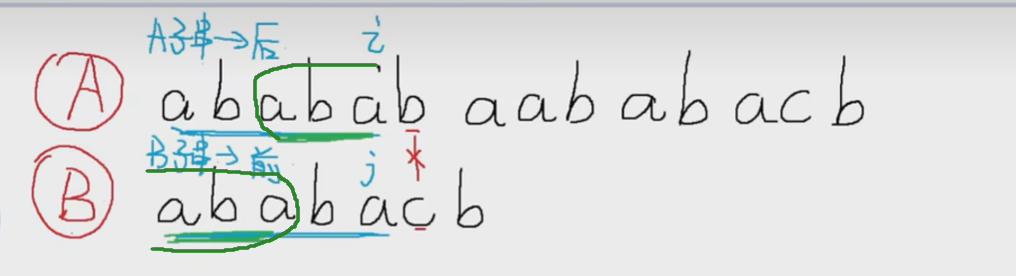 A子串→后 i
A ababab aabababacb
B子串→前 j *
B ababacb